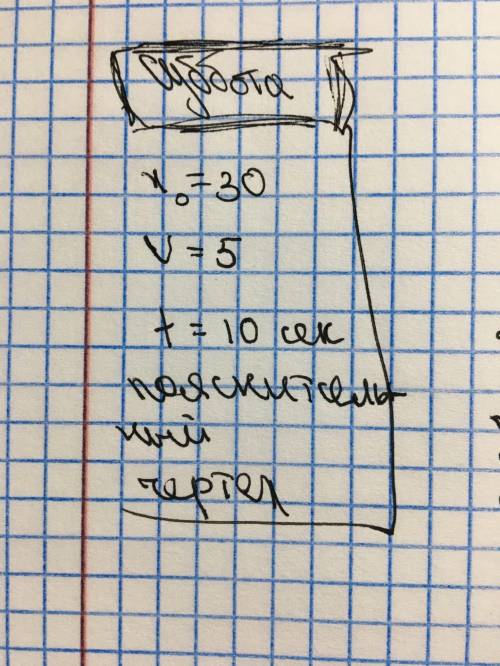 суббота
x₀ = 30
v = 5
t = 10 сек
пояснитель-
ный
чертеж